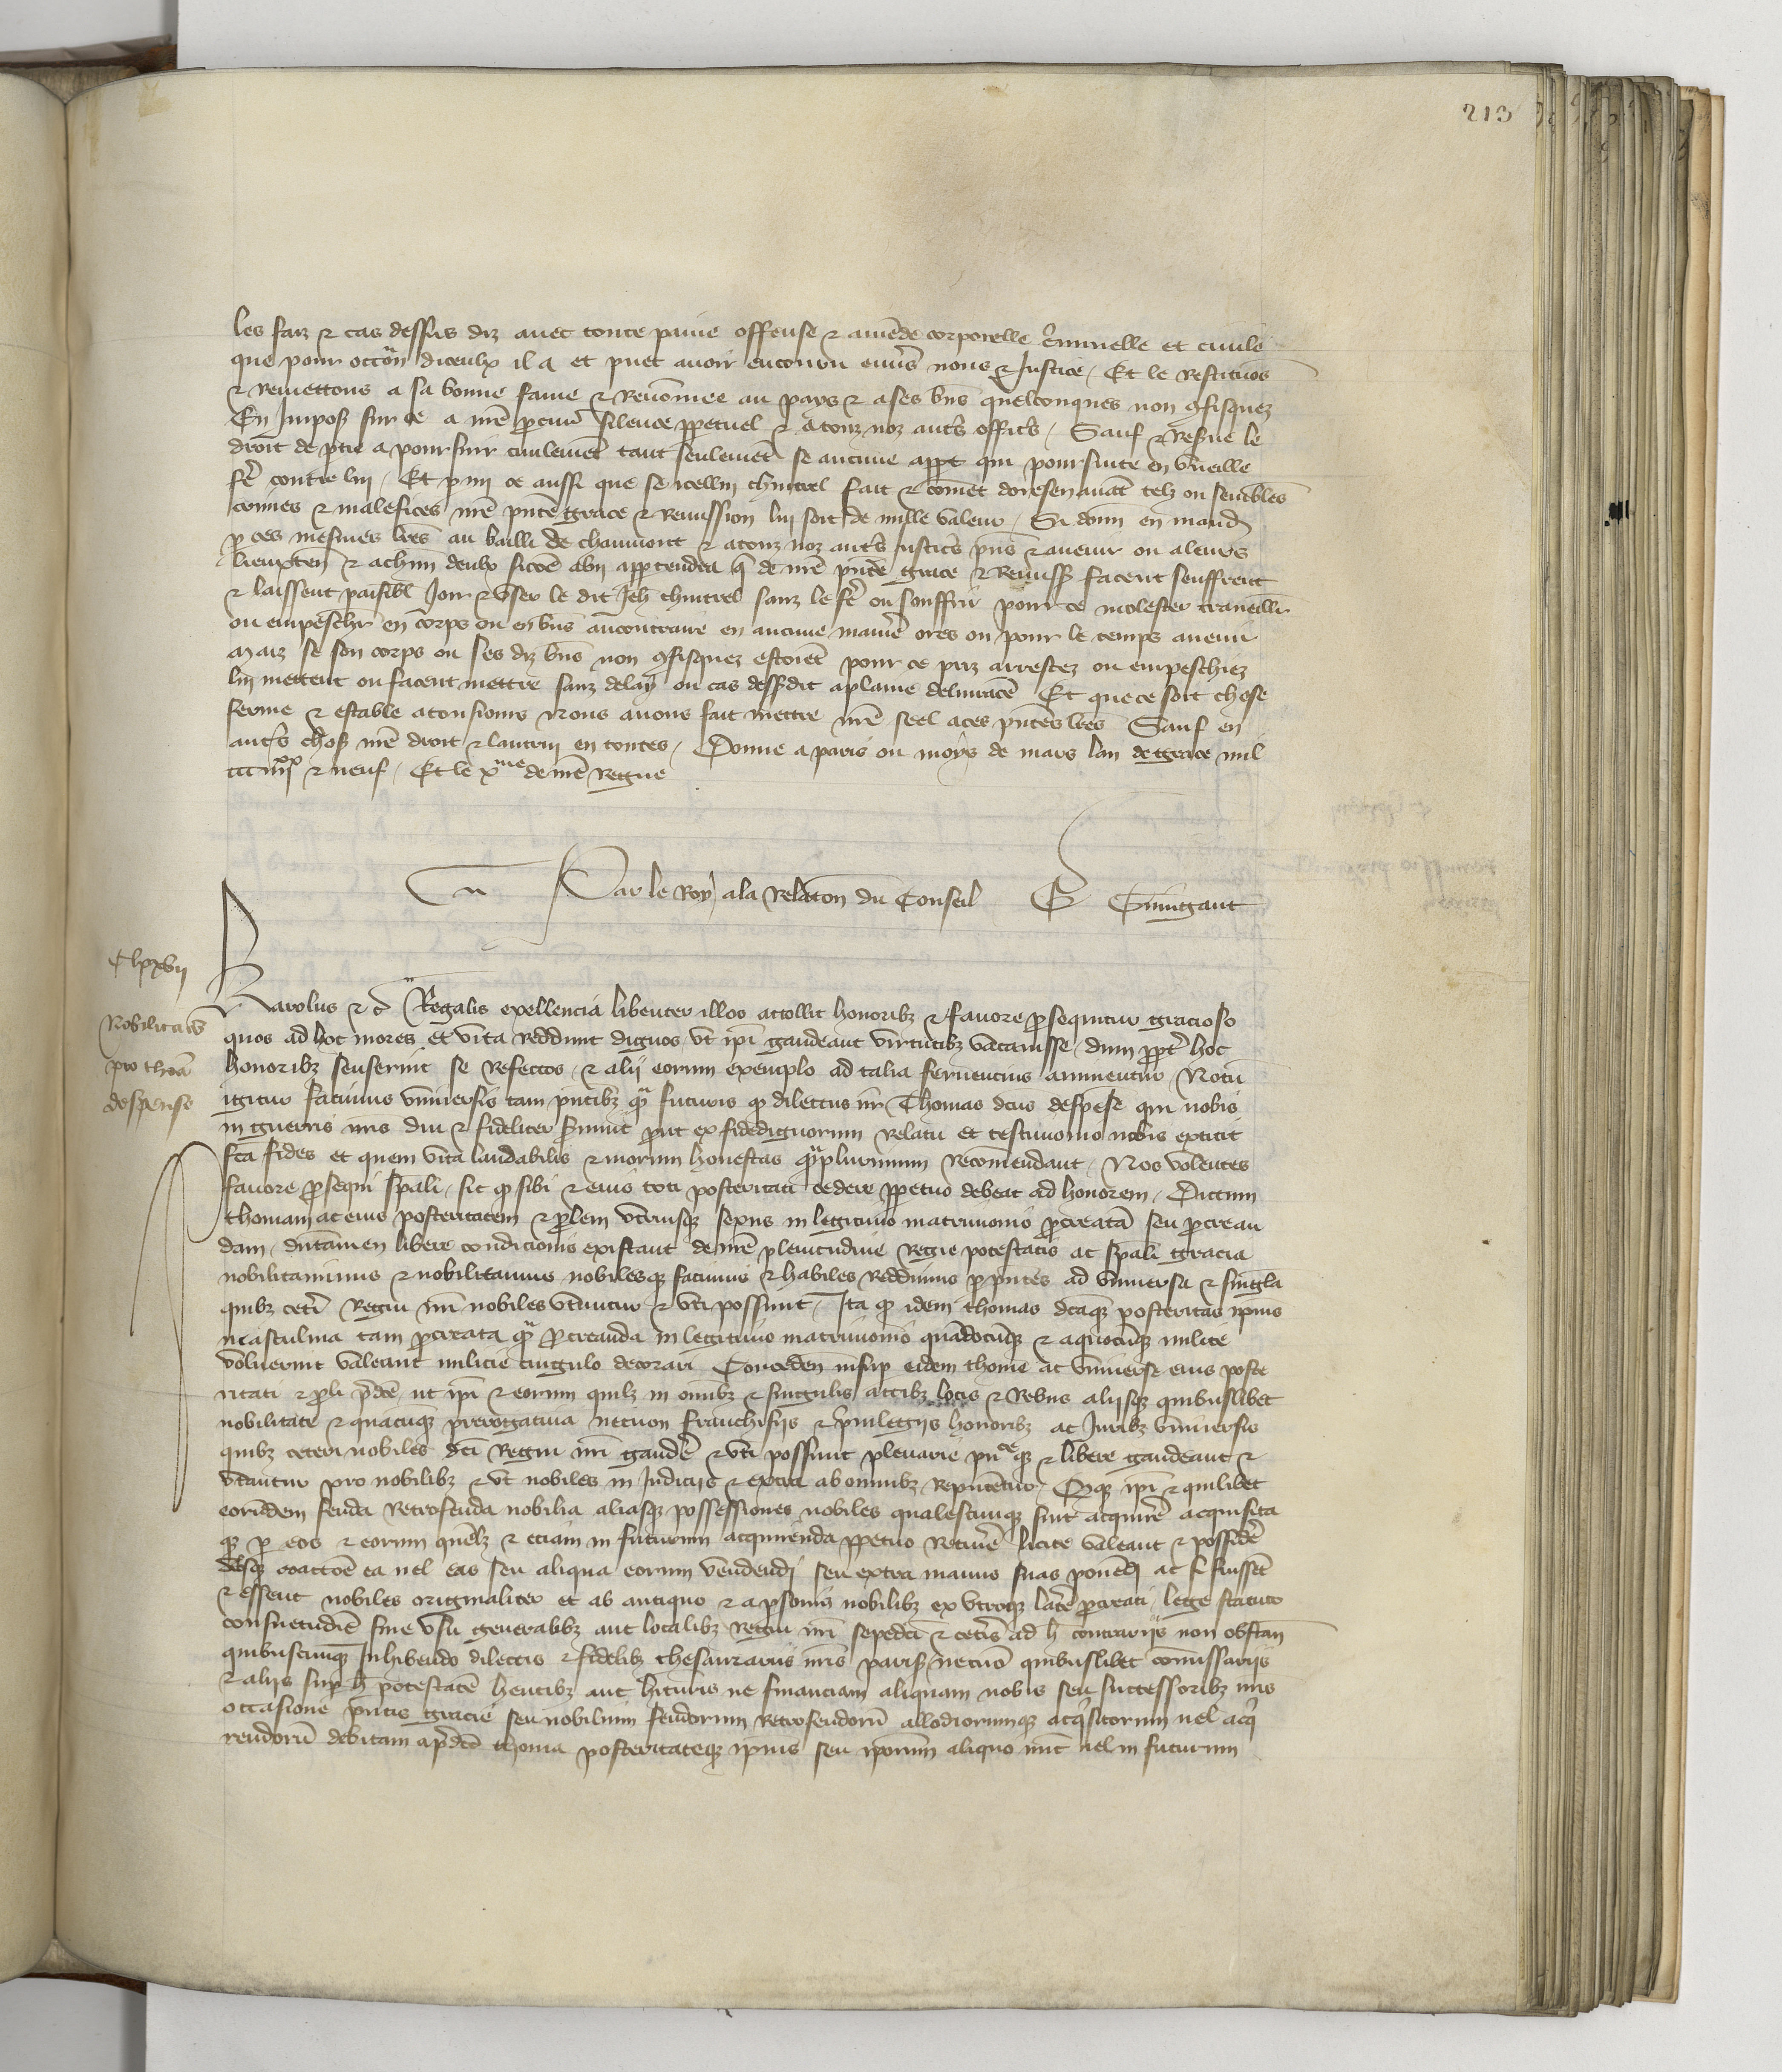 213
les faiz & cas dessus diz avec toute paine offense & amēde corporelle c'iminelle et civile
que pour occōn diceulx il a et puet avoir encouru enu's nous & Justice / Et le Restituōs
& remettons a sa bonne fame & Renōmee au pays & a ses bn̄s quelconques non 9fisquez
En Imposāt sur ce a nr̄e p̄cur' silence pp̄etuel & a touz noz aut's offic's / Sauf & Res've le
droit de p̄tie a poursuir civilemēt tant seulemēt se aucune appt qui poursuite en vueille
fē contre lui / Et p mi ce aussi que se icellui chintrel fait & cōmet doresenavāt telz ou semblēs
crimes & malefices nr̄e pn̄te grace & Remission lui soit de nulle valeur / Si donn̄ en mand̄
p ces mesmes lr̄es au bailli de chaumont & a touz noz aut's Justic's pn̄s & avenir ou a leurs
lieuxten̄ & a chūn deulx sicōe a luy appartendra q̄ de nr̄e pn̄te grace & Remiss̄ facent seuffrent
& laissent paisibl̄ Joir & user le dit Jeh̄ chintrel sanz le fē ou souffrir pour ce molester traveillir
ou empeschr en corps ou en biēs au contraire en aucune maniē ores ou pour le temps avenir
Maiz se son corps ou ses diz bn̄s non 9fisquez estoiēt pour ce priz arrestez ou empeschiez
lui mettent ou facent mettre sanz delay ou cas dess'dit a plaine delivrāce Et que ce soit chose
ferme & estable a tousiours Nous avons fait mettre nr̄e seel a ces pn̄tes lr̄es Sauf en
aut's choses nr̄e droit & lautrui en toutes / Donne a paris ou moys de mars lan de grace mil
ccc iiijxx & neuf / Et le xme de nr̄e Regne
Par le Roy a la Relacōn du Conseil G Guingant
Clxxvij
Nobilitacio
pro thoā
despense
Karolus &c Regalis exellencia libenter illos attollit honorib3 & favore prosequitur gracioso
quos ad hoc mores et vita reddunt dignos / vt ip̄i gaudeant virtutib3 vacavisse / dum ppt' hoc
honorib3 senserint se Refectos / & alij eorum exemplo ad talia ferventius animentur / Notū
igitur facimus vniversis tam pn̄tib3 qā futuris q dilectus nr̄ Thomas dcūs despēse qui nobis
in guerris nr̄is diu & fideliter s'vivit prout ex fidedignorum relatu et testimonio nobis extitit
fc̄a fides et quem vita laudabilis & morum honestas qāplurimum Recomendant / Nos volentes
favore prosequi sp̄ali / sic q sibi & eius toti posteritati cedere pp̄etuo debeat ad honorem / Dictum
thomam ac eius posteritatem & prolem utriusq3 sexus in legitimo matrimonio procreatā seu procrean
dam / dutamen libere condicionis existant de nr̄e plenitudine Regie potestatis ac sp̄ali gracia
nobilitavimus & nobilitamus nobilesq3 facimus & habiles Reddimus p pn̄tes ad vniversa & sing̃la
quib3 cet'i Regni nr̄i nobiles vtuntur & vti possunt / Ita q idem thomas dcāq3 posteritas ipius
masculina tam procreata qā procreanda in legitimo matrimonio quādocūq3 & a quocūq3 milite
voluerint valeant milicie cingulo decorari Conceden̄ insup eidem thome ac vniverse eius poste
ritati & proli p̄dc̄e ut ip̄i & eorum quil3 in omīb3 & singulis actib3 locis & Rebus aliisq3 quibuslibet
nobilitate & quacūq3 prerogativa necnon franchisijs & privilegijs honorib3 ac Jurib3 vniversis
quib3 ceteri nobiles dc̄i Regni nr̄i gaudēt & vti possunt plenarie pu'ceq3 & libere gaudeant &
vtantur pro nobilib3 & vt nobiles in Judicijs & extra ab omnib3 Reputētur / Q̄q3 ip̄i & quilibet
eorūdem feuda Retrofeuda nobilia aliasq3 possessiones nobiles qualescūq3 sint acquire' acquisita
q3 p eos & eorum quēl3 & etiam in futurum acquirenda pp̄etuo Retinē licite valeant & possidē
absq3 coactōe ea vel eas seu aliqua eorum vendendi seu extra manus suas ponēdi ac si fuissēt
& essent nobiles originaliter et ab antiquo & a psonis nobilib3 ex vtroq3 latē procreati lege statuto
consuetudīe sive vsu generalib3 aut localib3 Regni nr̄i sepedc̄i & cet'is ad h̄ contrarijs non obstan̄
quibuscunq3 Inhibendo dilectis & fidelib3 thesaurarijs nr̄is parisī necnō quibuslibet comissarijs
& alijs sup h̄ potestatē hn̄tib3 aut hīturis ne financiam aliquam nobis seu successorib3 nr̄is
occasione pn̄tis gracie seu nobilium feudorum Retrofeudorū allodiorumq3 acqisitorum vel acqi
rendorū debitam a p̄dc̄o thoma posteritateq3 ipius seu ip̄orum aliquo nūc vel in futurum